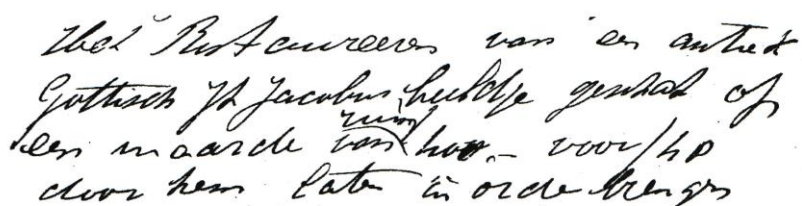 Het Restaureeren van een antiek
Gottisch St Jacobus beeldje geschat op
een waarde van ruim – voor
door hem laten in orde brengen